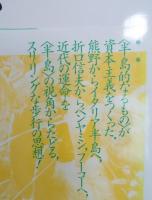 〈半島的〉なるものが
資本主義をつくった。
熊野からイタリア半島へ、
折口信夫からベンヤミン、フーコーへ、
近代の運命を
〈半島〉の視角からたどる、
スリリングな歩行の思想!